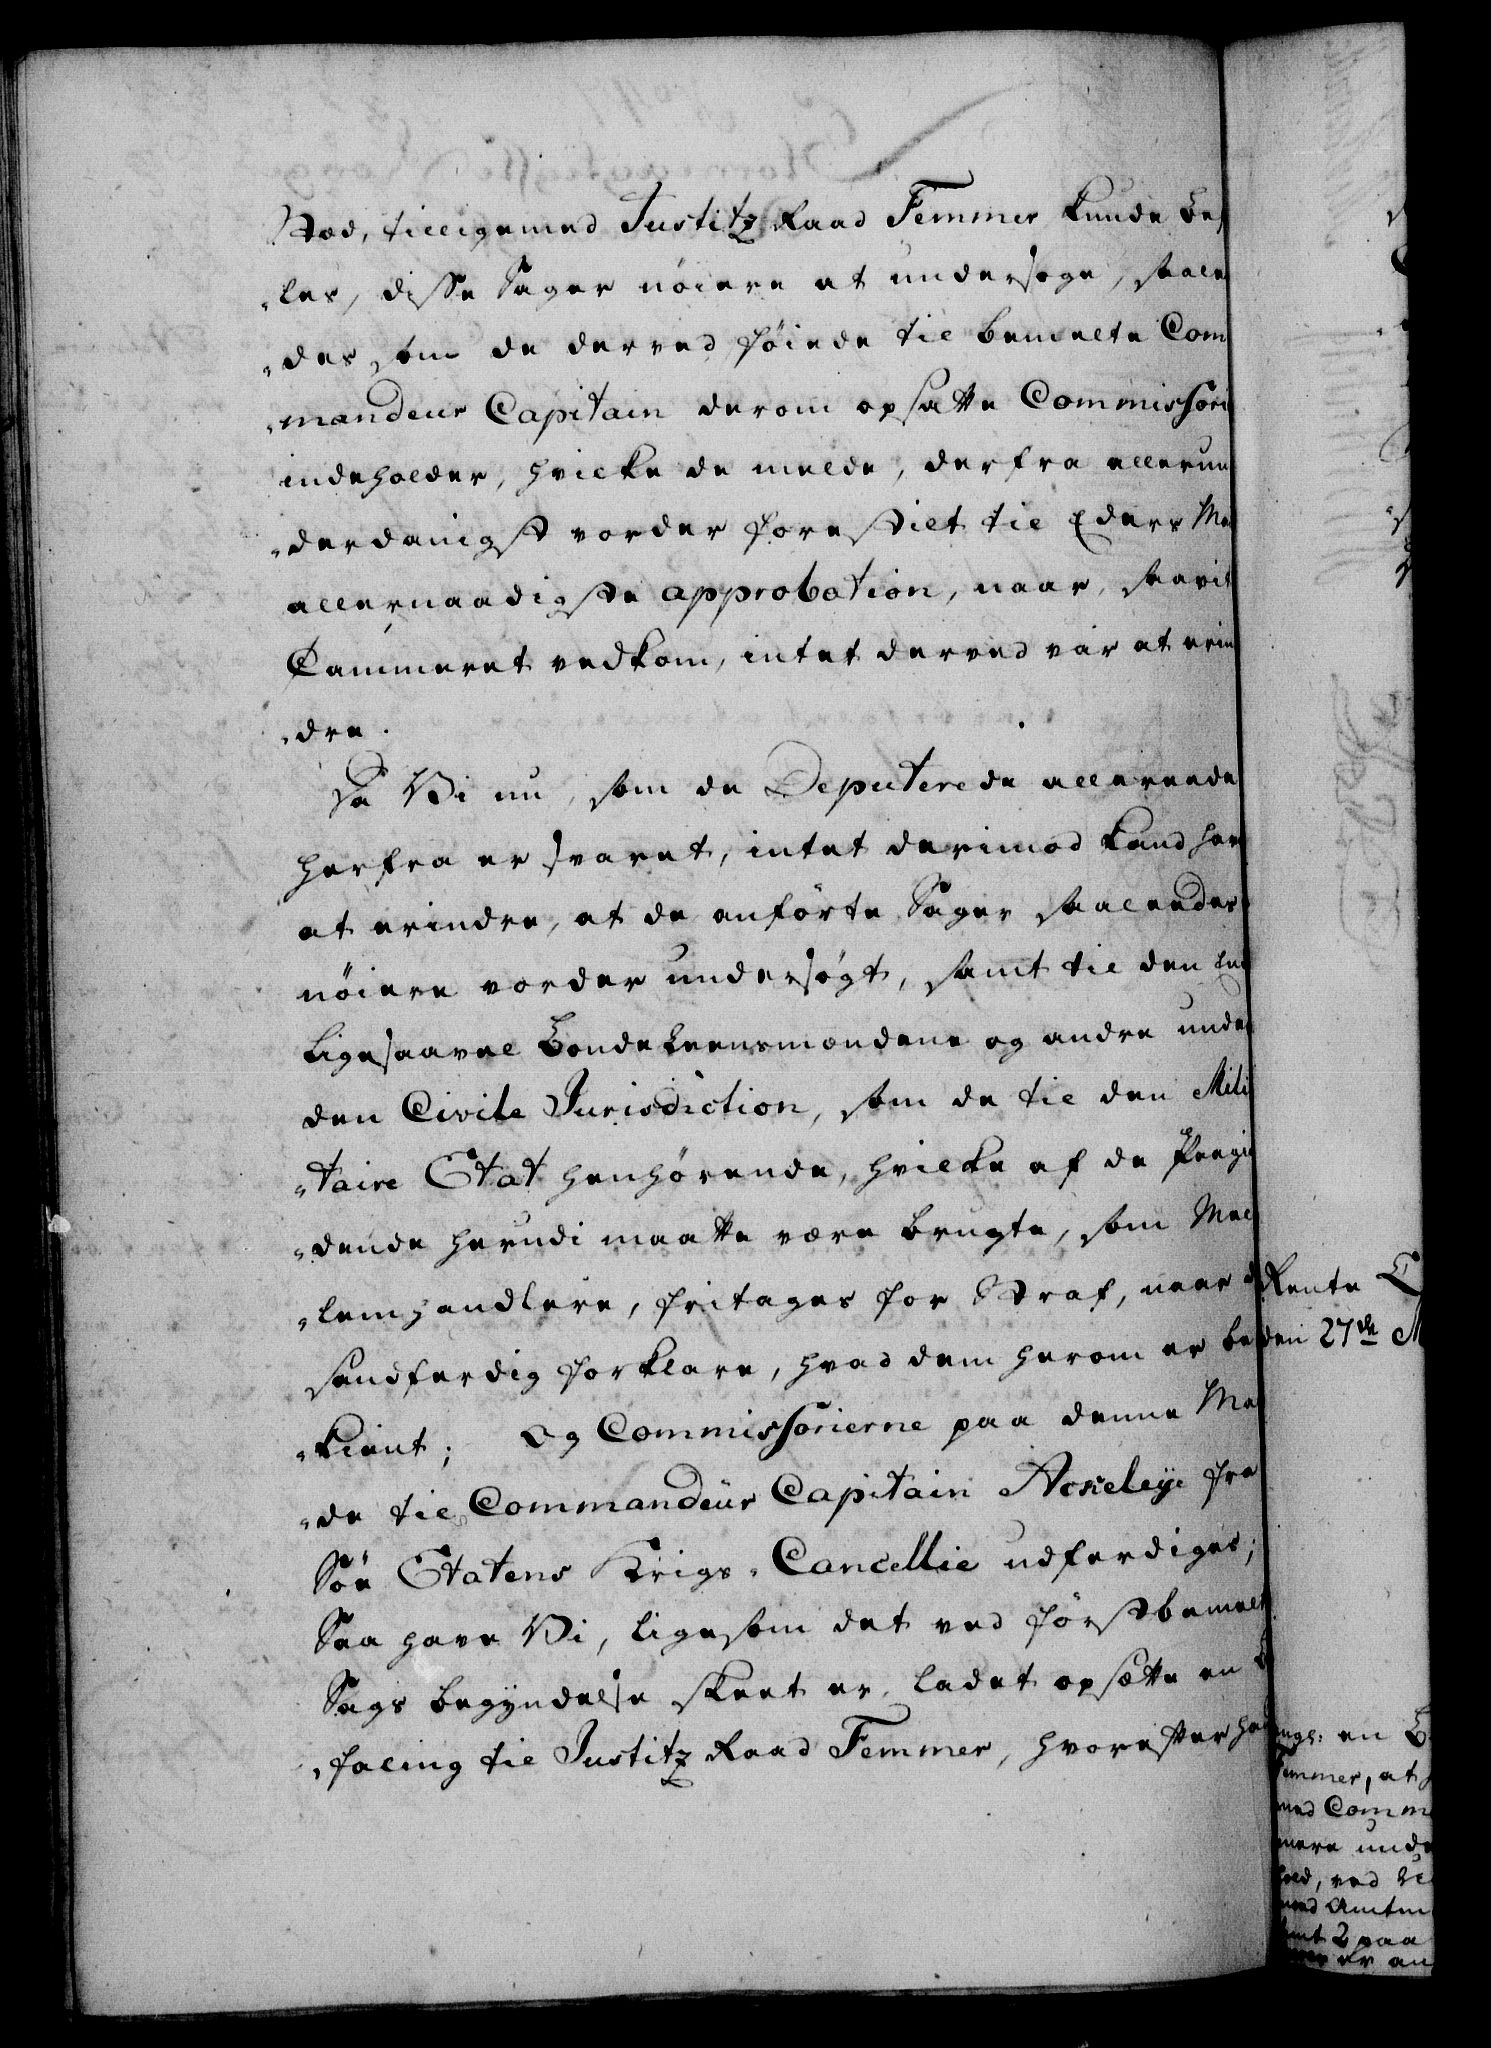 Stæd, tilligemed Justitz Raad Femmer kunde be-
„les, disse Sager nöiere at undersøge, saale
„des som de derved föiede til bemelte Com
„mandeur Capitain derom opsatte Commissori
indeholder, hvilke de melde, derfra allerun
„derdanigst vorder forestilet til Eders Ma
allernaadigste approbation, naar, saavit
Cammeret vedkom, intet derved var at erin
„dre.
Da Vi nu, som de Deputerede allereede
herfra er svaret, intet derimod kand har
at erindre, at de anförte Sager saaleedes
nöiere vorder undersøgt, samt til den End
ligesaavel Bondeleensmændene og andre under
den Civile Jurisdiction, som de til den Mili
„taire Etat henhørende, hvilke af de
„dende herudi maatte være brugte, som Mel
„lemhandlere, fritages for Straf, naar d
sandferdig forklare, hvad dem herom er be
„kient; Og Commissorierne paa denne Maa
„de til Commandeur Capitain Ackeleye fra
Söe Etatens Krigs-Cancellie udferdiges;
Saa have Vi, ligesom det ved förstbemelt
Sags begyndelse skeet er, ladet opsætte en B
„faling til Justitz Raad Femmer, hvorefter han
Rente C
den 27de M
en B
Femmer, at
med Comm
mere unde
ved
med Amtm
samt 2 paa
er an